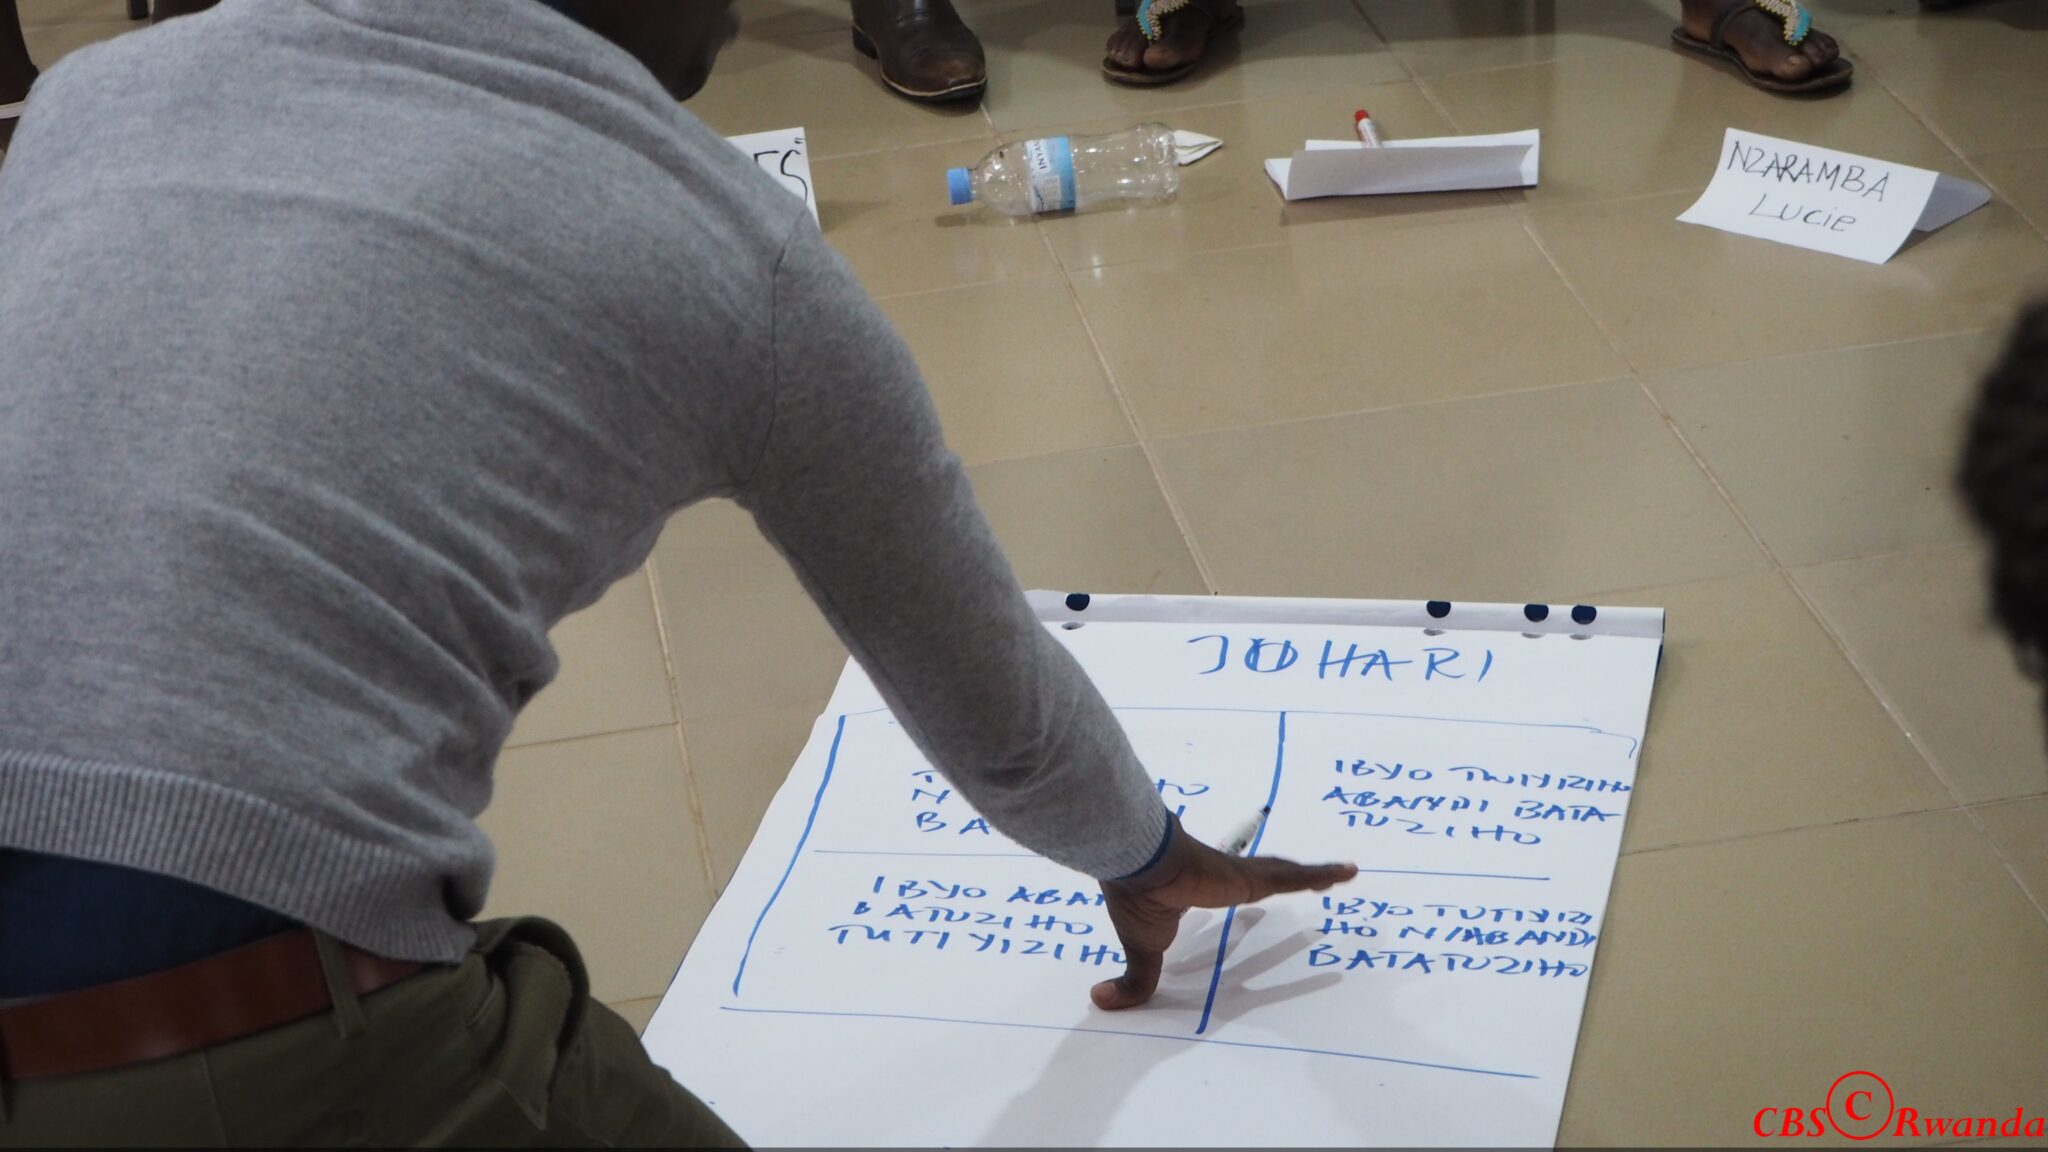 NZARAMBA
Lucie
INYA
JOHARI
IBYO TWIYIZIHO
ABANDI BATA-
TUZIHO
BA
IBYO ABAN
BATUZIHO
TUTIYIZIHO
IBYO TUTIYIZI
HO N'ABANDI
BATATUZIHO
CBS © Rwanda